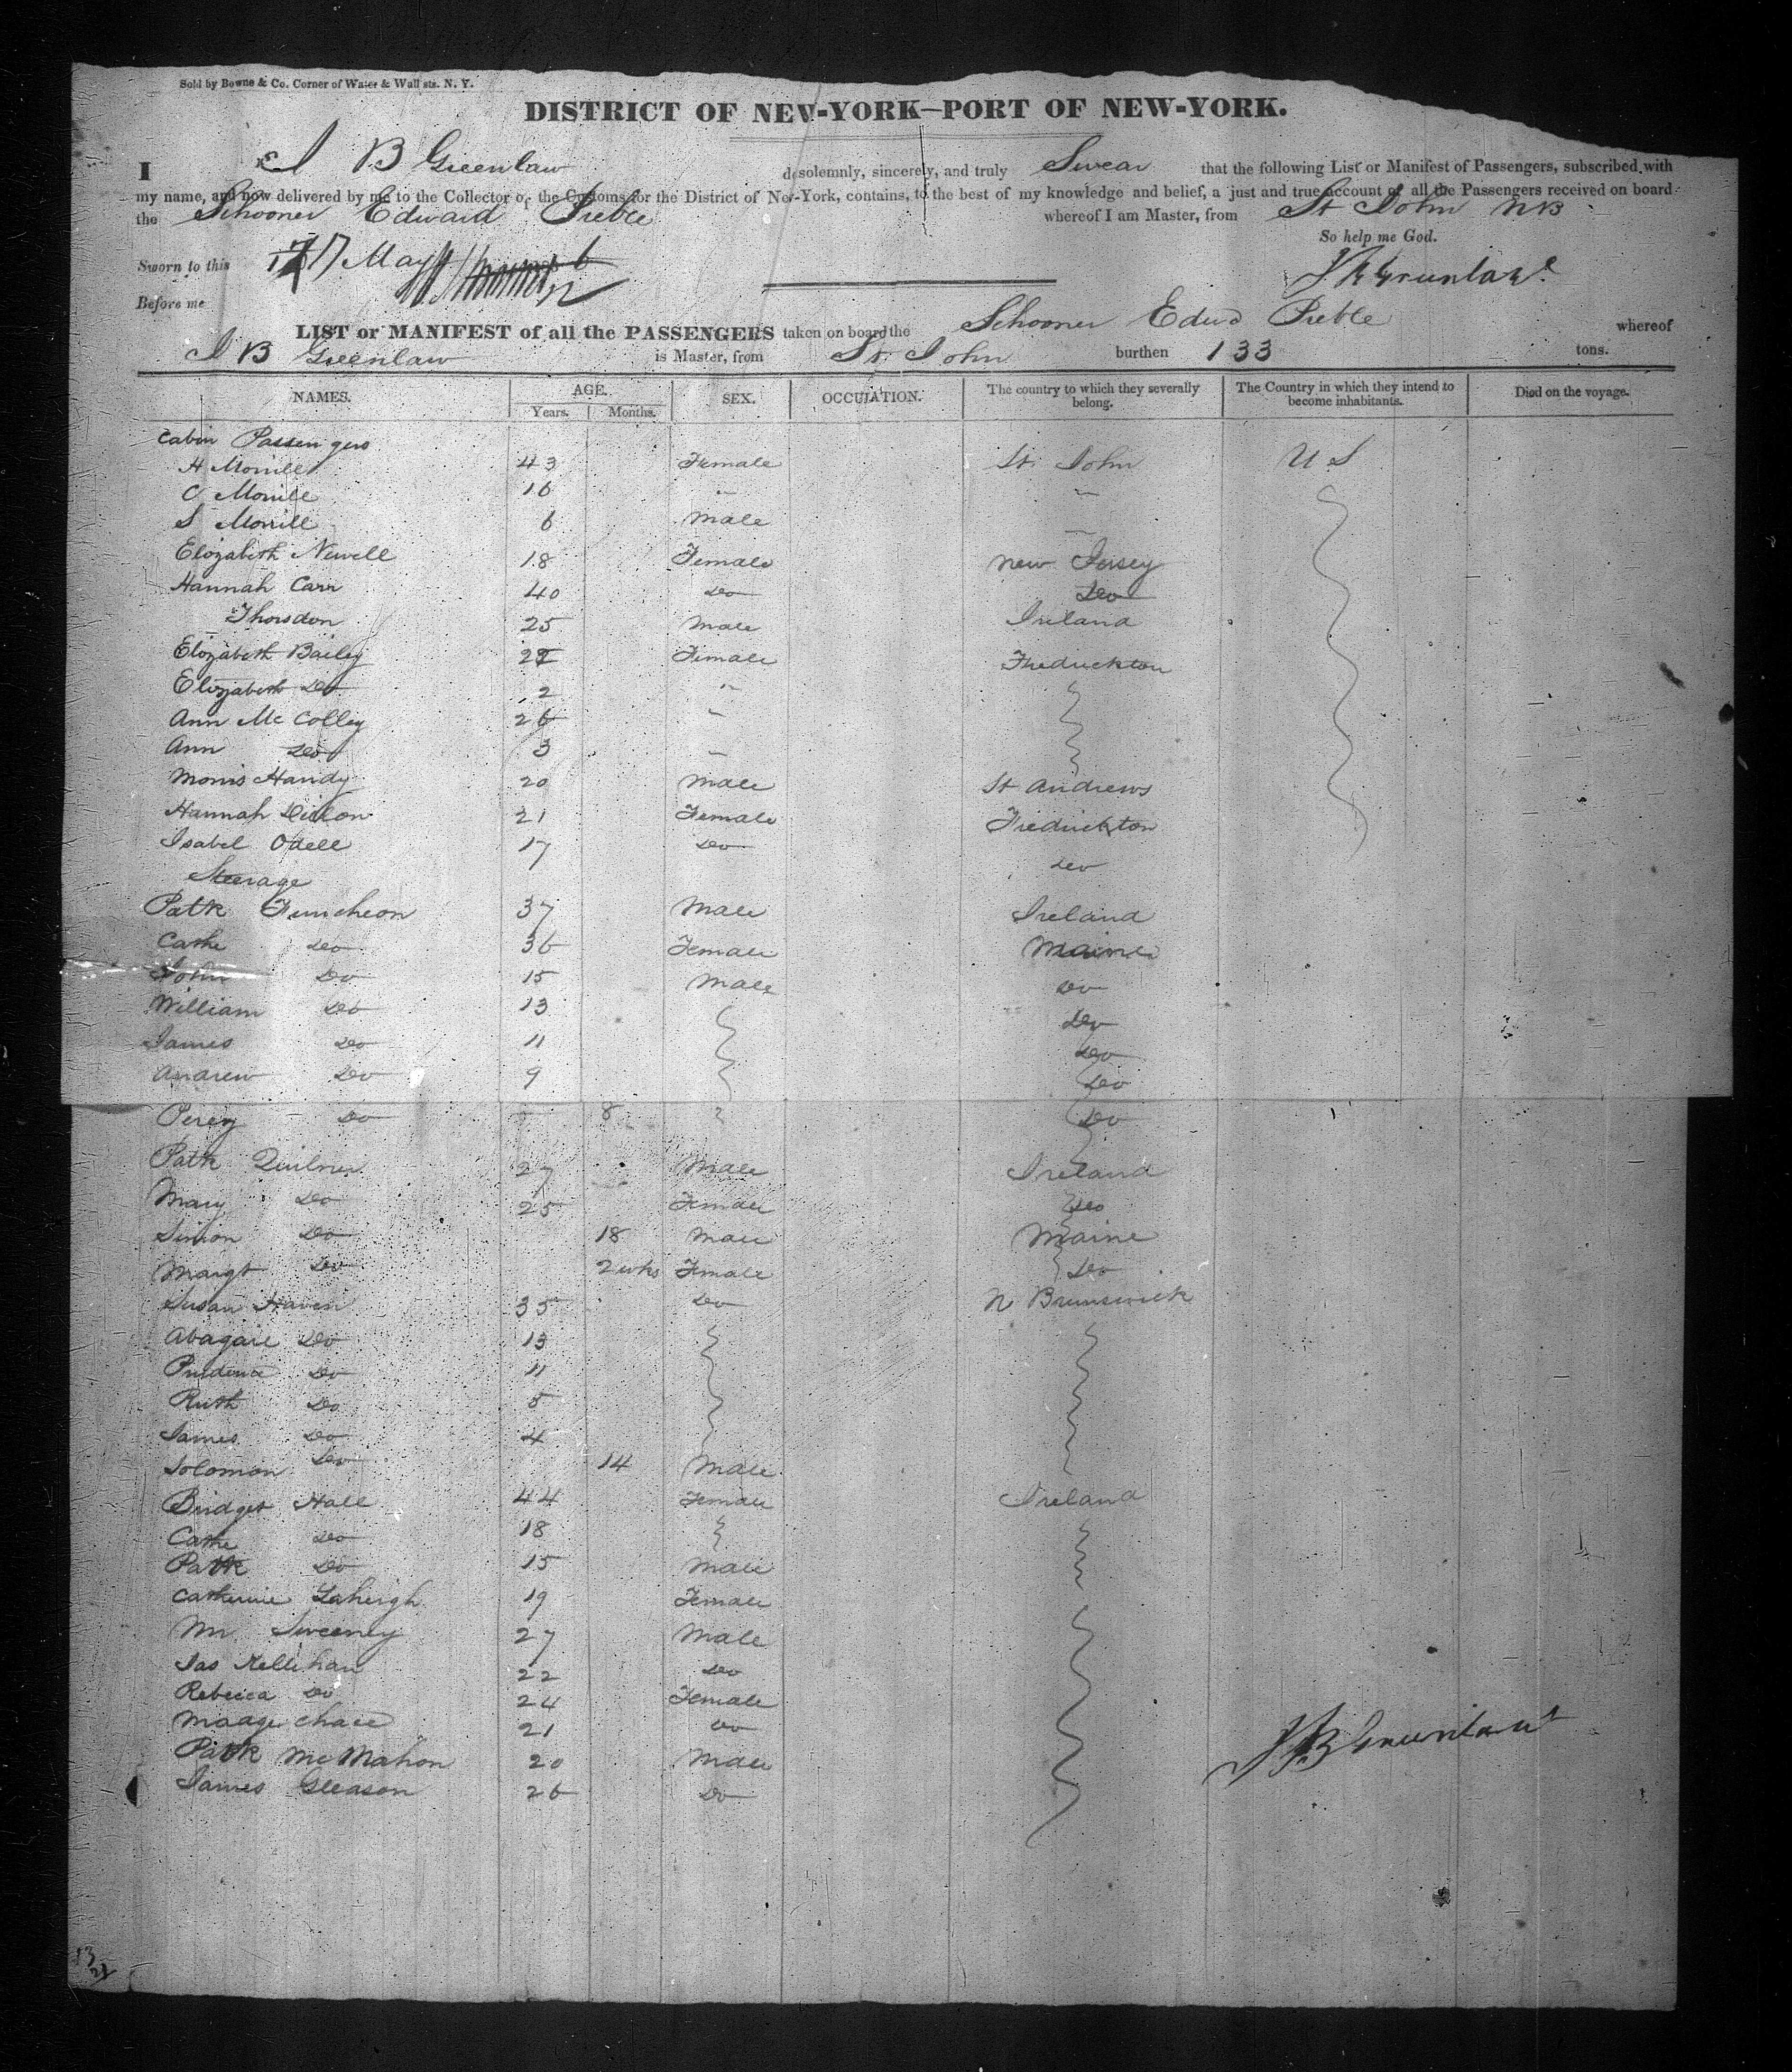 Sold by Bowne & Co. Corner of Water & Wall sts. N. Y.
DISTRICT OF NEW-YORK—PORT OF NEW-YORK.
I J B Greenlaw do solemnly, sincerely, and truly Swear that the following List or Manifest of Passengers, subscribed with
my name, and now delivered by me to the Collector of the Customs for the District of New-York, contains, to the best of my knowledge and belief, a just and true account of all the Passengers received on board
the Schooner Edward Preble whereof I am Master, from St John NB
So help me God.
Sworn to this 17 May
J B Greenlaw
Before me
LIST or MANIFEST of all the PASSENGERS taken on board the Schooner Edwd Preble whereof
J B Greenlaw is Master, from St. John burthen 133 tons.
NAMES. AGE. Years. Months. SEX. OCCUPATION. The country to which they severally belong. The Country in which they intend to become inhabitants. Died on the voyage.
Cabin Passengers
H Morrill 43 Female St. John U S
C Morrill 16 "
S Morrill 6 Male
Elizabeth Newell 18 Female New Jersey
Hannah Carr 40 Do Do
Thorsdon 25 Male Ireland
Elizabeth Bailey 22 Female Fredrickton
Elizabeth Do 2 "
Ann McColley 26 "
Ann Do 3 "
Morris Handy 20 Male St Andrews
Hannah Dillon 21 Female Fredrickton
Isabel Odell 17 Do Do
Steerage
Patk Funcheon 37 Male Ireland
Cathe Do 36 Female Maine
John Do 15 Male Do
William Do 13 Do
James Do 11 Do
Andrew Do 9 Do
Percy Do 8 Do
Patk 27 Male Ireland
Mary Do 25 Female Do
Simon Do 18 Male Maine
Margt Do 2 wks Female Do
Susan Haven 35 Do N Brunswick
Abagail Do 13
Prudence Do 11
Ruth Do 5
James Do 4
Solomon Do 14 Male
Bridget Hall 44 Female Ireland
Cathe Do 18
Patk Do 15 Male
Catherine Laheigh 19 Female
Mr Sweeney 27 Male
Jas Kellihan 22 Do
Rebecca Do 24 Female
Maage Chace 21 Do
Patk McMahon 20 Male
James Gleason 26 Do
J B Greenlaw